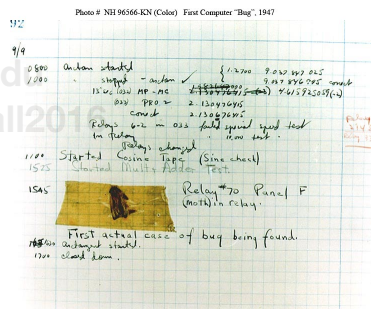 Photo # NH 96566-KN (Color) First Computer "Bug", 1947
92
9/9
0800 Antan started
1000 " stopped - antan ✓
{ 1.2700 9.037 847 025
9.037 846 795 correct
13"uc (032) MP-MC 4.615925059(-2)
(033) PRO 2 2.130476415
correct 2.130676415
Relays 6-2 in 033 failed special speed test
in relay 10.000 test.
Relays changed
1100 Started Cosine Tape (Sine check)
1525 Started Mult+Adder Test.
1545 Relay #70 Panel F
(moth) in relay.
First actual case of bug being found.
antangent started.
1700 closed down.